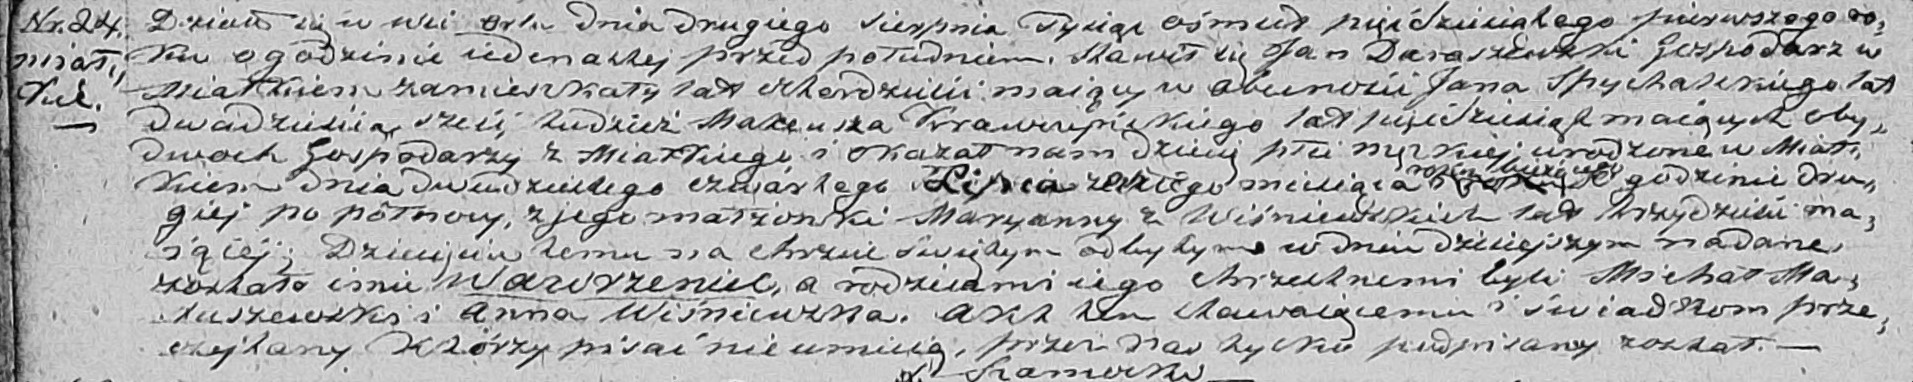 Nr. 24. Działo się w wsi Orlu dnia drugiego Sierpnia Tysiąc ośmset pięćdziesiątego pierwszego ro,
Miałt,, ku o godzinie iedenastej przed południem, stawił się Jan Daraszewski Gospodarz w
kie. Miałkiem zamieszkały lat czterdzieści maiący w obecności Jana Spychalskiego lat
dwadzieścia sześć, tudzież Mateusza Krawczyńskiego lat pięćdziesiąt maiących oby,,
dwóch Gospodarzy z Miałkiego i okazał nam dziecię płci męzkiej urodzone w Miał,
kiem dnia dwudziestego czwartego Lipca zeszłego miesiąca roku bieżącego o godzinie dru,,
giej po północy, z jego małżonki Maryanny z Wiśniewskich lat trzydzieści ma,
iącej; Dziecięciu temu na chrzcie świętym odbytym w dniu dzisiejszym nadane
zostało imie Wawrzeniec, a rodzicami iego chrzestnemi byli Michał Ma,
tuszewski i Anna Wiśniewska. Akt ten stawaiącemu i świadkom prze,
czytany którzy pisać nie umieią, przez nas tylko podpisany został. —
X. Szamocki